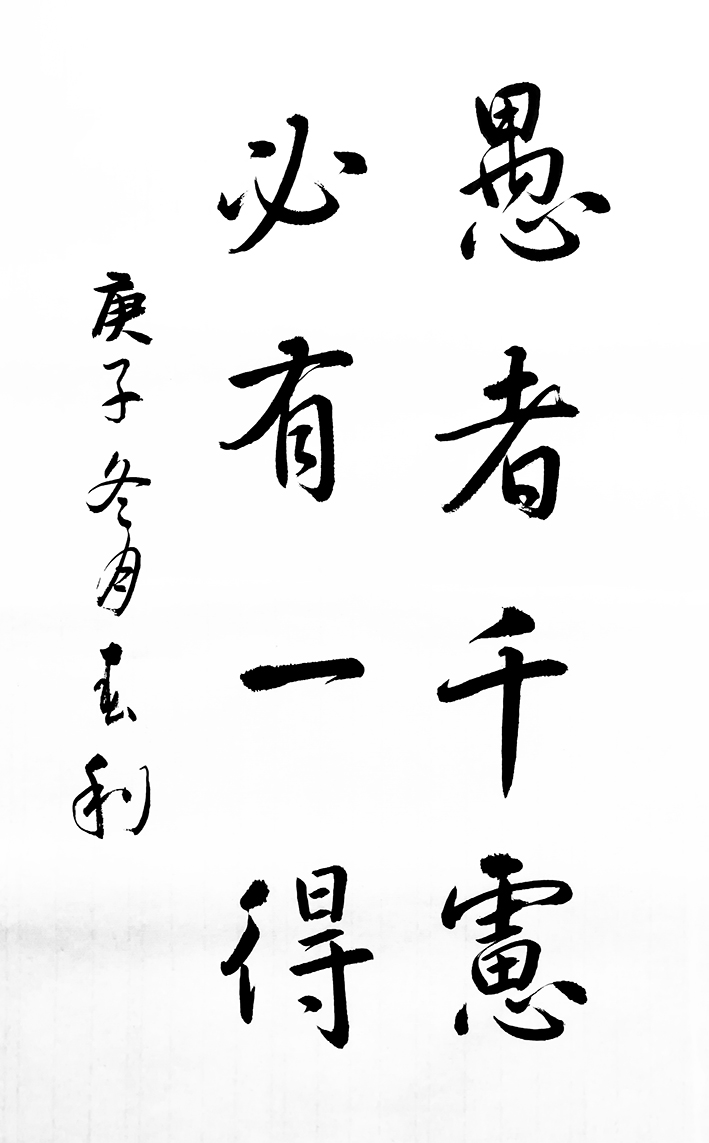 愚者千慮
必有一得
庚子冬月玉利